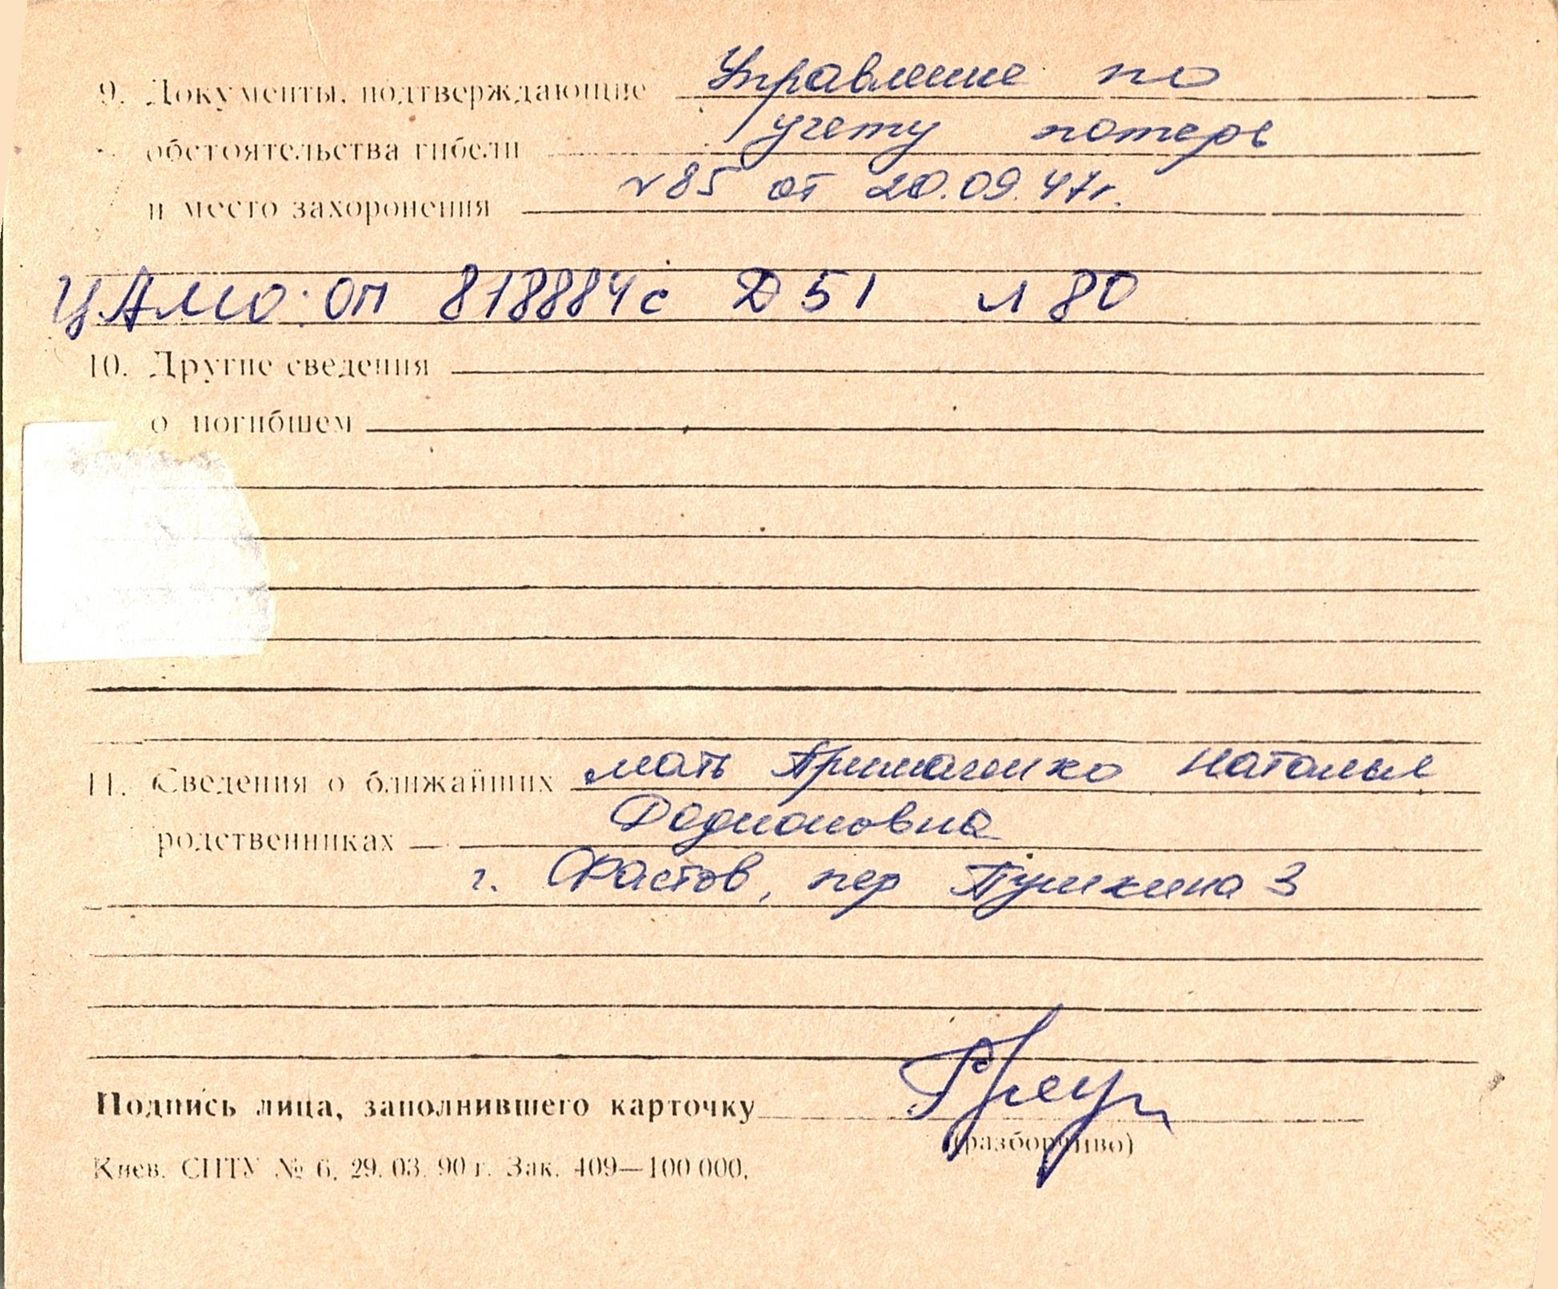 9. Документы, подтверждающие Управление по
обстоятельства гибели учету потерь
и место захоронения №85 от 20.09.47г.
ЦАМО оп 818884с Д 51 л 80
10. Другие сведения
о погибшем
11. Сведения о ближайших мать Примаченко Наталья
родственниках Родионовна
г. Фастов, пер Пушкина 3
Подпись лица, заполнившего карточку
(разборчиво)
Киев. СПТУ № 6. 29.03.90 г. Зак. 409—100 000.